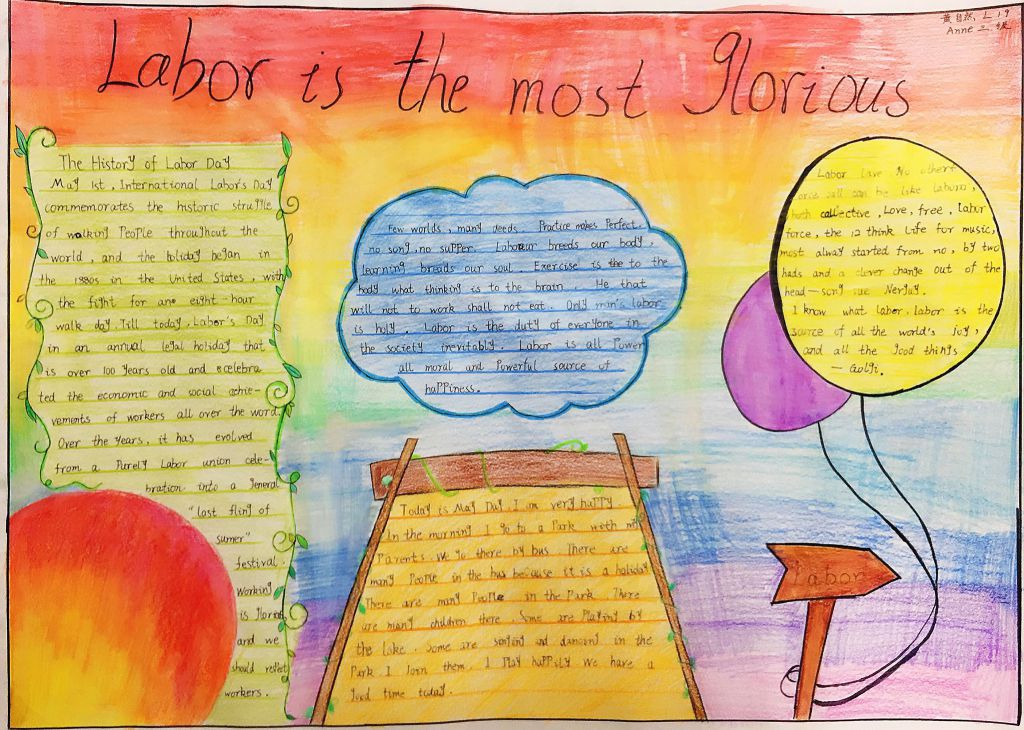 黄自然, L 19
Anne 三级
Labor is the most glorious
The History of Labor Day
May 1st, International Labor's Day
commemorates the historic struggle
of walking People throughout the
world, and the holiday began in
the 1880s in the United States, with
the fight for an eight-hour
walk day. Till today, Labor's Day
in an annual legal holiday that
is over 100 years old and celebra
ted the economic and social achie-
vements of workers all over the word.
Over the years, it has evolved
from a Purely Labor union cele-
bration into a general
"last fling of
sumer"
festival.
Working
is glorious
and we
should reflet
workers.
Few worlds, many deeds. Practice makes Perfect.
no song, no supper. Labour breeds our body,
learning breads our soul. Exercise is the to the
body what thinking is to the brain. He that
will not to work shall not eat. Only man's labor
is holy. Labor is the duty of everyone in
the society inevitably. Labor is all Power
all moral and Powerful source of
happiness.
Today is May Day. I am very happy
In the morning I go to a Park with my
Parents. We go there by bus. There are
many People in the bus because it is a holiday
There are many People in the Park. There
are many children there. Some are Playing by
the lake. Some are singing and dancing in the
Park I Join them. I Play happily We have a
good time today.
Labor love No other
force can be like
both collective, Love, free, labor
force, the 12 think Life for music,
most alway started from no, by two
hads and a clever change out of the
head—
I know what labor, labor is the
source of all the world's joy,
and all the good things
— Golgi.
Labor